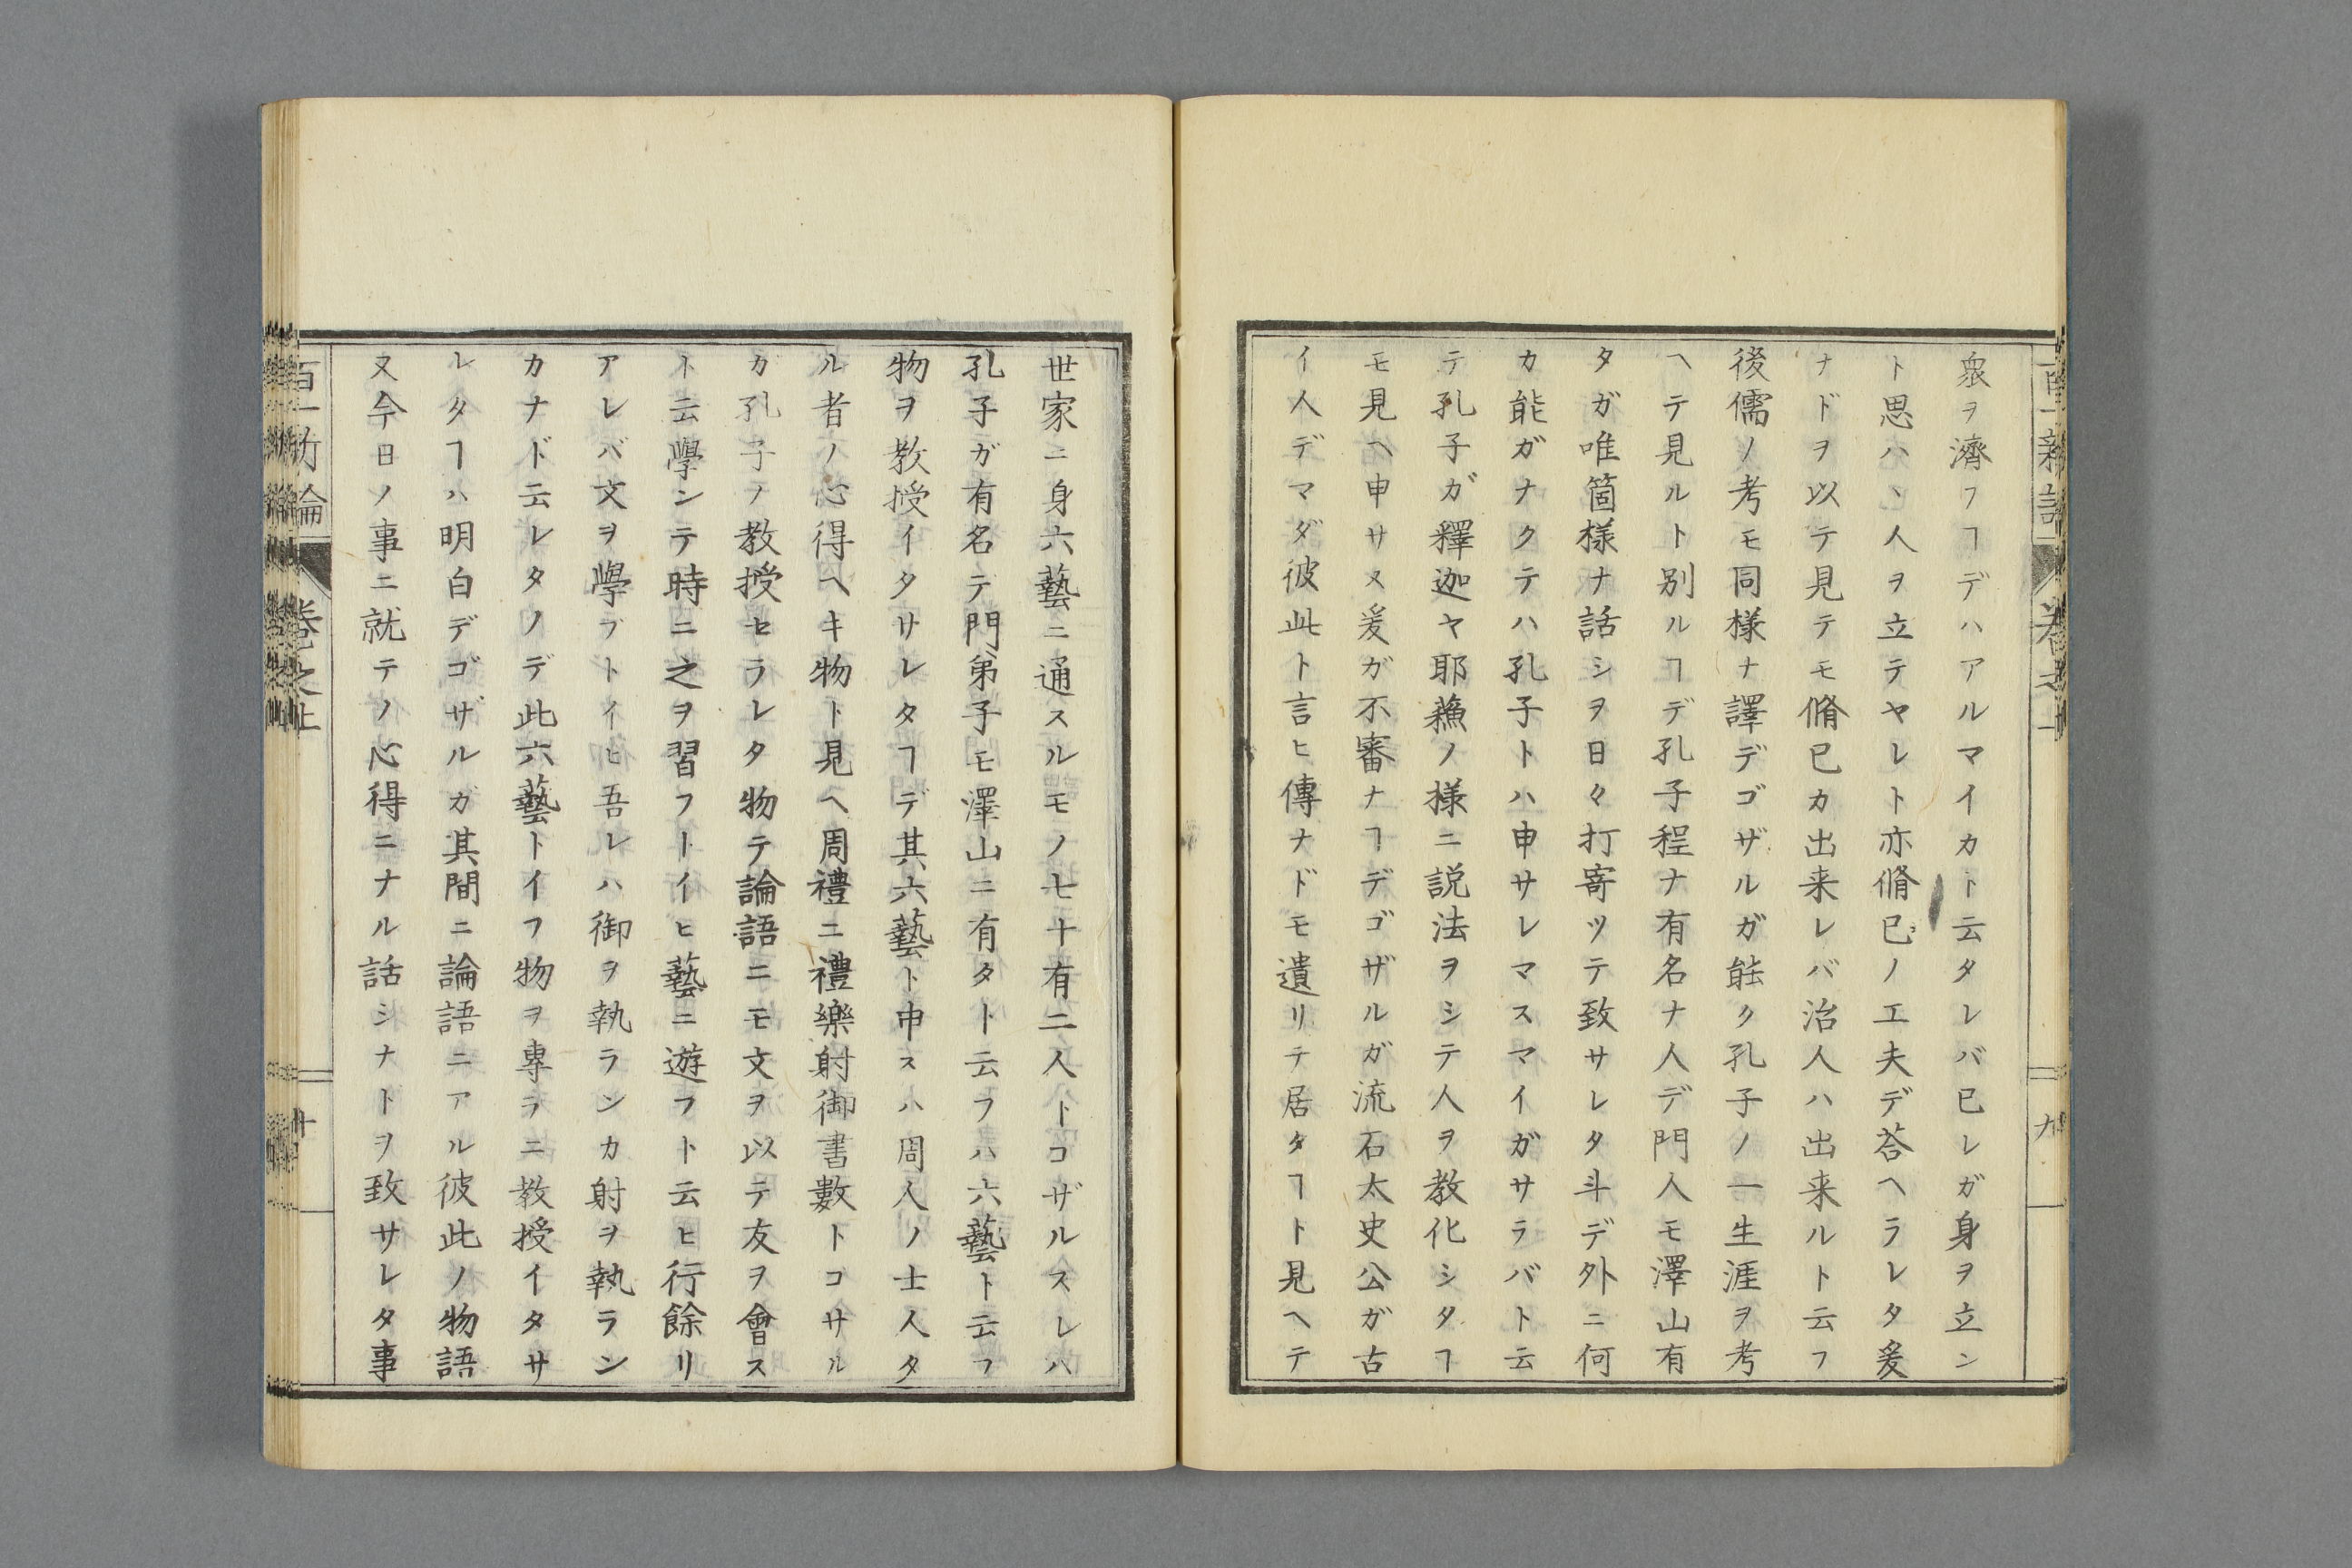 衆ヲ濟フヿデハアルマイカト云タレバ已レガ身ヲ立ン
ト思ハヽ人ヲ立テヤレト亦脩已ノ工夫デ荅ヘラレタ爰
ナドヲ以テ見テモ脩已カ出来レバ治人ハ出来ルト云フ
後儒ノ考モ同様ナ譯デゴザルガ能ク孔子ノ一生涯ヲ考
ヘテ見ルト別ルヿデ孔子程ナ有名ナ人デ門人モ澤山有
タガ唯箇様ナ話シヲ日々打寄ツテ致サレタ斗デ外ニ何
カ能ガナクテハ孔子トハ申サレマスマイガサラバト云
テ孔子ガ釋迦ヤ耶蘓ノ様ニ説法ヲシテ人ヲ教化シタヿ
モ見ヘ申サヌ爰ガ不審ナヿデゴザルガ流石太史公ガ古
イ人デマダ彼此ト言ヒ傳ナドモ遺リテ居タヿト見ヘテ
九
世家ニ身六藝ニ通スルモノ七十有二人トコザルスレハ
孔子ガ有名デ門弟子モ澤山ニ有タト云フハ六藝ト云フ
物ヲ教授イタサレタヿデ其六藝ト申スハ周人ノ士人タ
ル者ノ心得ヘキ物ト見ヘ周禮ニ禮樂射御書數トコサル
カ孔子ノ教授セラレタ物テ論語ニモ文ヲ以テ友ヲ會ス
ト云學ンテ時ニ之ヲ習フトイヒ藝ニ遊フト云ヒ行餘リ
アレバ文ヲ學ブトイヒ吾レハ御ヲ執ランカ射ヲ執ラン
カナド云レタノデ此六藝トイフ物ヲ專ラニ教授イタサ
レタヿハ明白デゴザルガ其間ニ論語ニアル彼此ノ物語
又今日ノ事ニ就テノ心得ニナル話シナトヲ致サレタ事
百一新論 巻之上 十